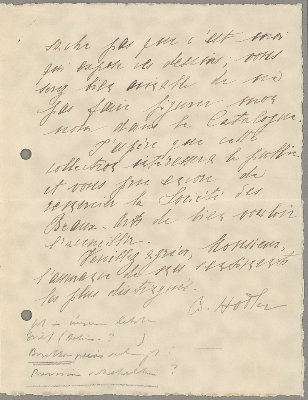 sache pas que c'est moi
qui expose ces dessins, vous
serez bien aimable de ne
pas faire figurer mon
nom dans le Catalogue.
J'espère que cette
collection intéressera le public
et vous prie encore de
remercier la Société des
Beaux-Arts de bien vouloir
l'accueillir.
Veuillez agréer, Monsieur,
l'assurance de mes sentiments
les plus distingués.
B. Hodler